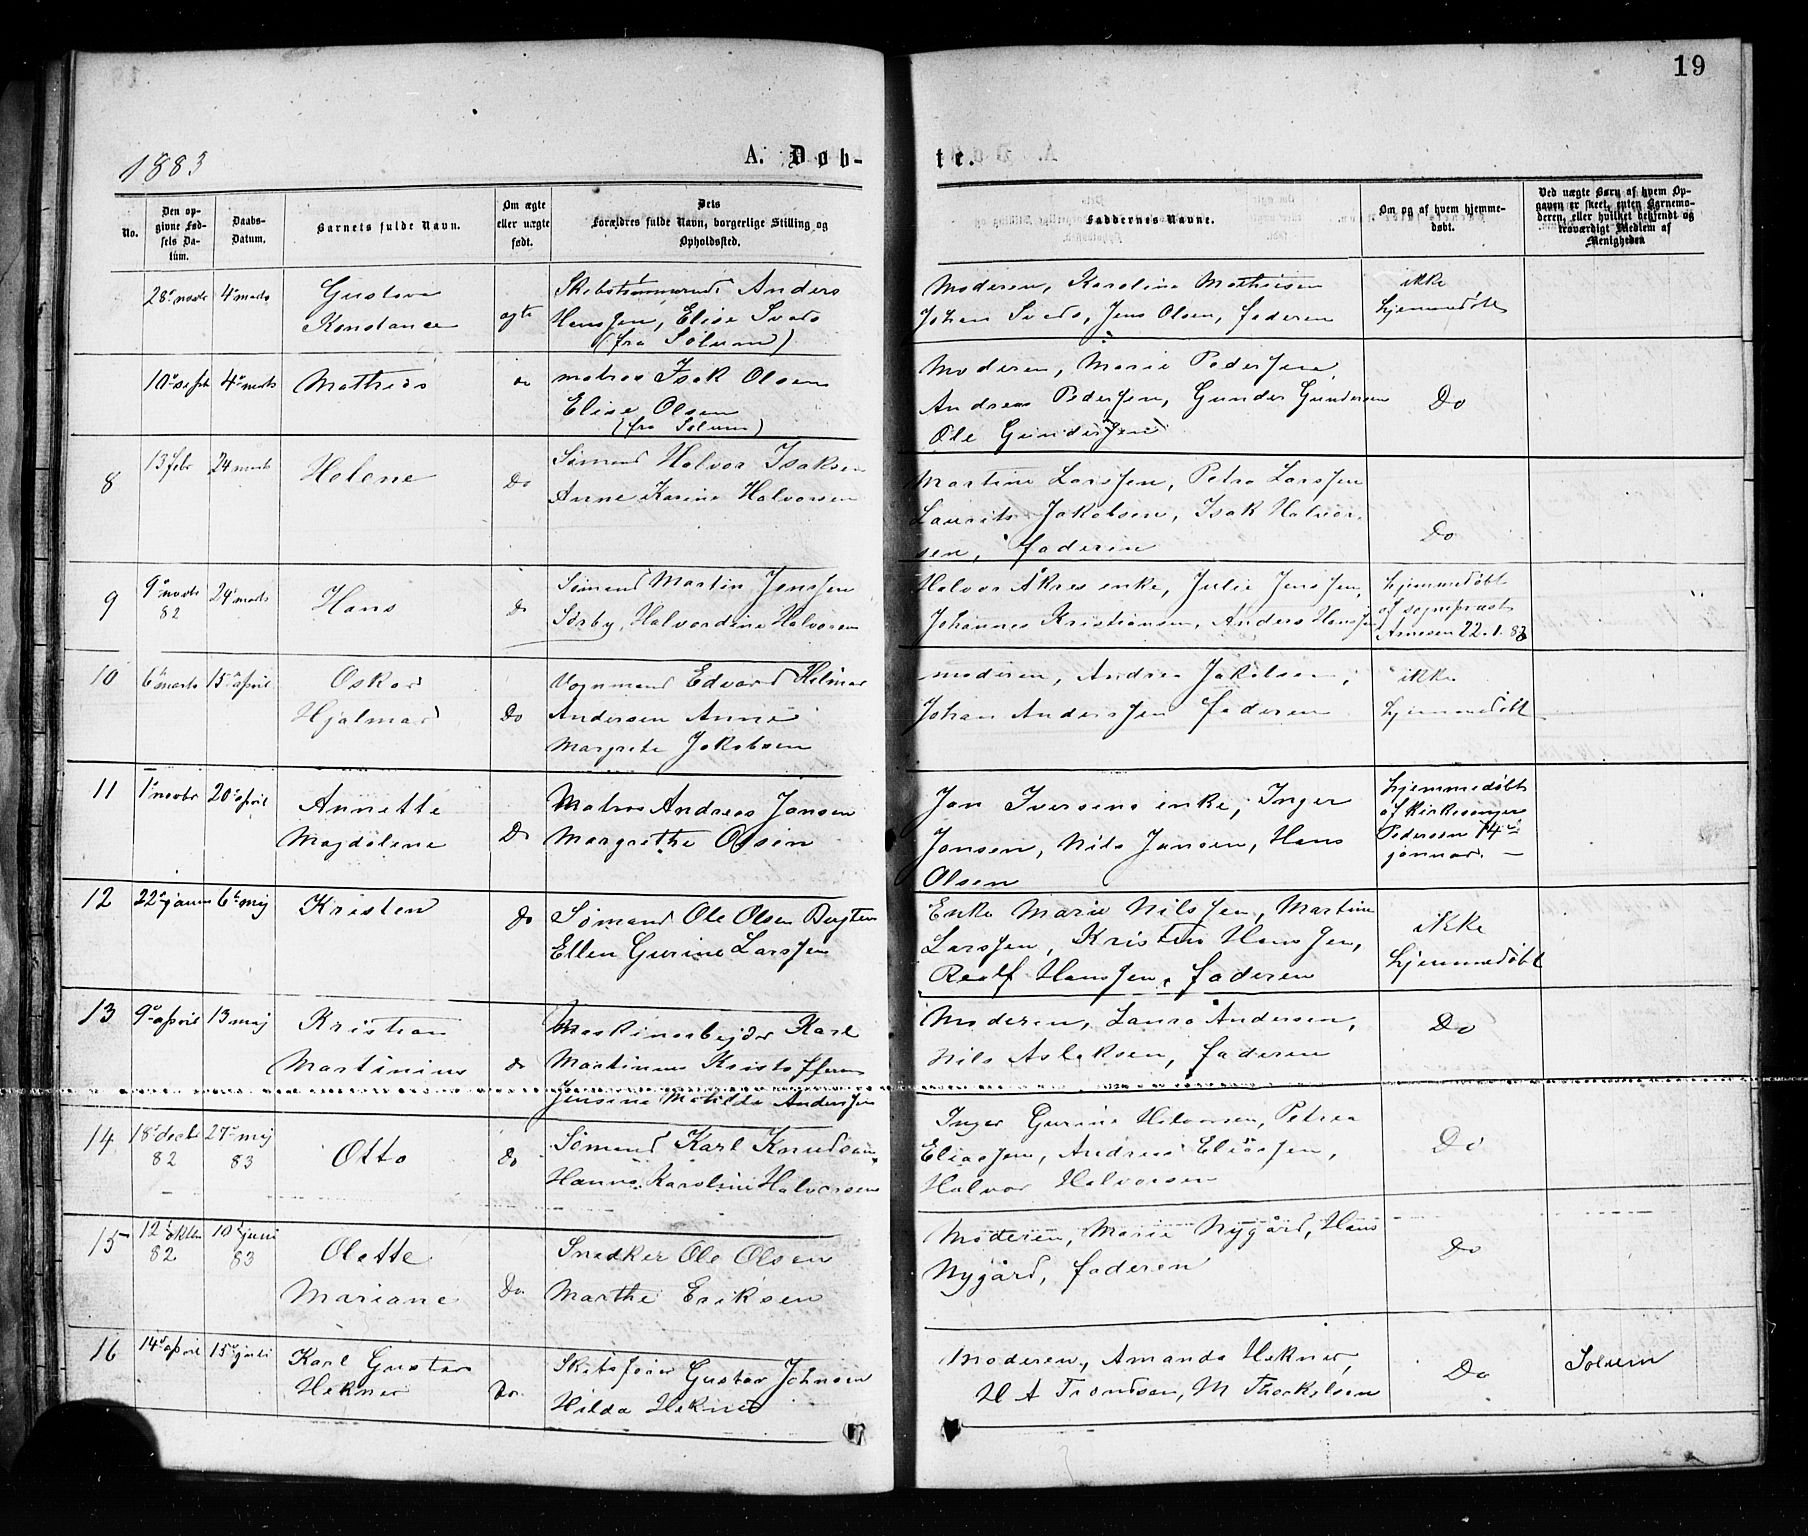 19
1883
A. Døb-
te.
No.
Den op-
givne Fød-
sels Da-
tum.
Daabs-
Datum.
Barnets fulde Navn.
Om ægte
eller uægte
født.
Dets
Forældres fulde Navn, borgerlige Stilling og
Opholdssted.
Faddernes Navne.
Om og af hvem hjemme-
døbt.
Ved uægte Børn af hvem Op-
gaven er skeet, enten Barnemo-
deren, eller hvilket bekjendt og
troværdigt Medlem af
Menigheden
28 novbr 4 marts
Gustava
Konstance
ægte
Skibstømmermd Anders
Hanssen, Elise
(fra Solum)
Moderen, Karoline Mathisen
Johan Jens Olsen, faderen
ikke
hjemmedøbt
10 septb 4 marts
Mathias
do
matros Isak Olsen
Elise Olsen
(fra Solum)
Moderen, Marie Pedersen
Andreas Pedersen, Gunder Gundersen
Ole Gundersen
Do
8
13 febr 24 marts
Helene
Do
Sømand Halvor Isaksen
Anne Karine Halvorsen
Martine Larssen, Petra Larssen
Laurits Jakobsen, Isak Halvor-
sen, faderen
Do
9
9 novb
82
24 marts
Hans
Do
Sømand Martin Jenssen
Sørby, Halvordine Halvorsen
Halvor Åkres enke, Julie Jenssen,
Johannes Kristiansen, Anders Hanssen
hjemmedøbt
af sogneprest
Arnesen 22.1.83
10
6 marts 15 april
Oskar
Hjalmar
Do
Vognmand Edvard Hilmar
Andersen Anne
Margrete Jakobsen
moderen, Andrea Jakobsen,
Johan Anderssen faderen
ikke
hjemmedøbt
11
1 novbr 20 april
Annette
Magdalene
Do
Matros Andreas Jansen
Margrethe Olsen
Jan Iversens enke, Inger
Jansen, Nils Jansen, Hans
Olsen
hjemmedøbt
af Kirkesanger
Pedersen 14
januar.
12
22 januar 6 maj
Kristen
Do
Sømand Ole Olsen
Ellen Gurine Larssen
Enke Marie Nilssen, Martine
Larssen, Kristen Hanssen,
Realf Hanssen, faderen
ikke
hjemmedøbt
13
9 april 13 maj
Kristian
Martinius
do
Maskinarbejder Karl
Martinus Kristoffersen
Jensine Matilde Anderssen
Moderen, Laura Andersen,
Nils Aslaksen, faderen
Do
14
18 decbr
82
27 maj
83
Otto
Do
Sømand Karl Knudsen,
Hanna Karoline Halvorsen
Inger Gurine Halvorsen, Petrea
Eliassen, Andreas Eliassen,
Halvor Halvorsen
Do
15
12 oktbr
82
10 juni
83
Olette
Mariane
Do
Snedker Ole Olsen
Marthe Eriksen
Moderen, Marie Nygård, Hans
Nygård, faderen
Do
16
14 april 15 juli
Karl Gustav
Hekner
Do
Skibsfører Gustav Johnsen
Hilda Hekner
Moderen, Amanda Hekner,
H A Trondsen, M Thorkelsen
Do
Solum